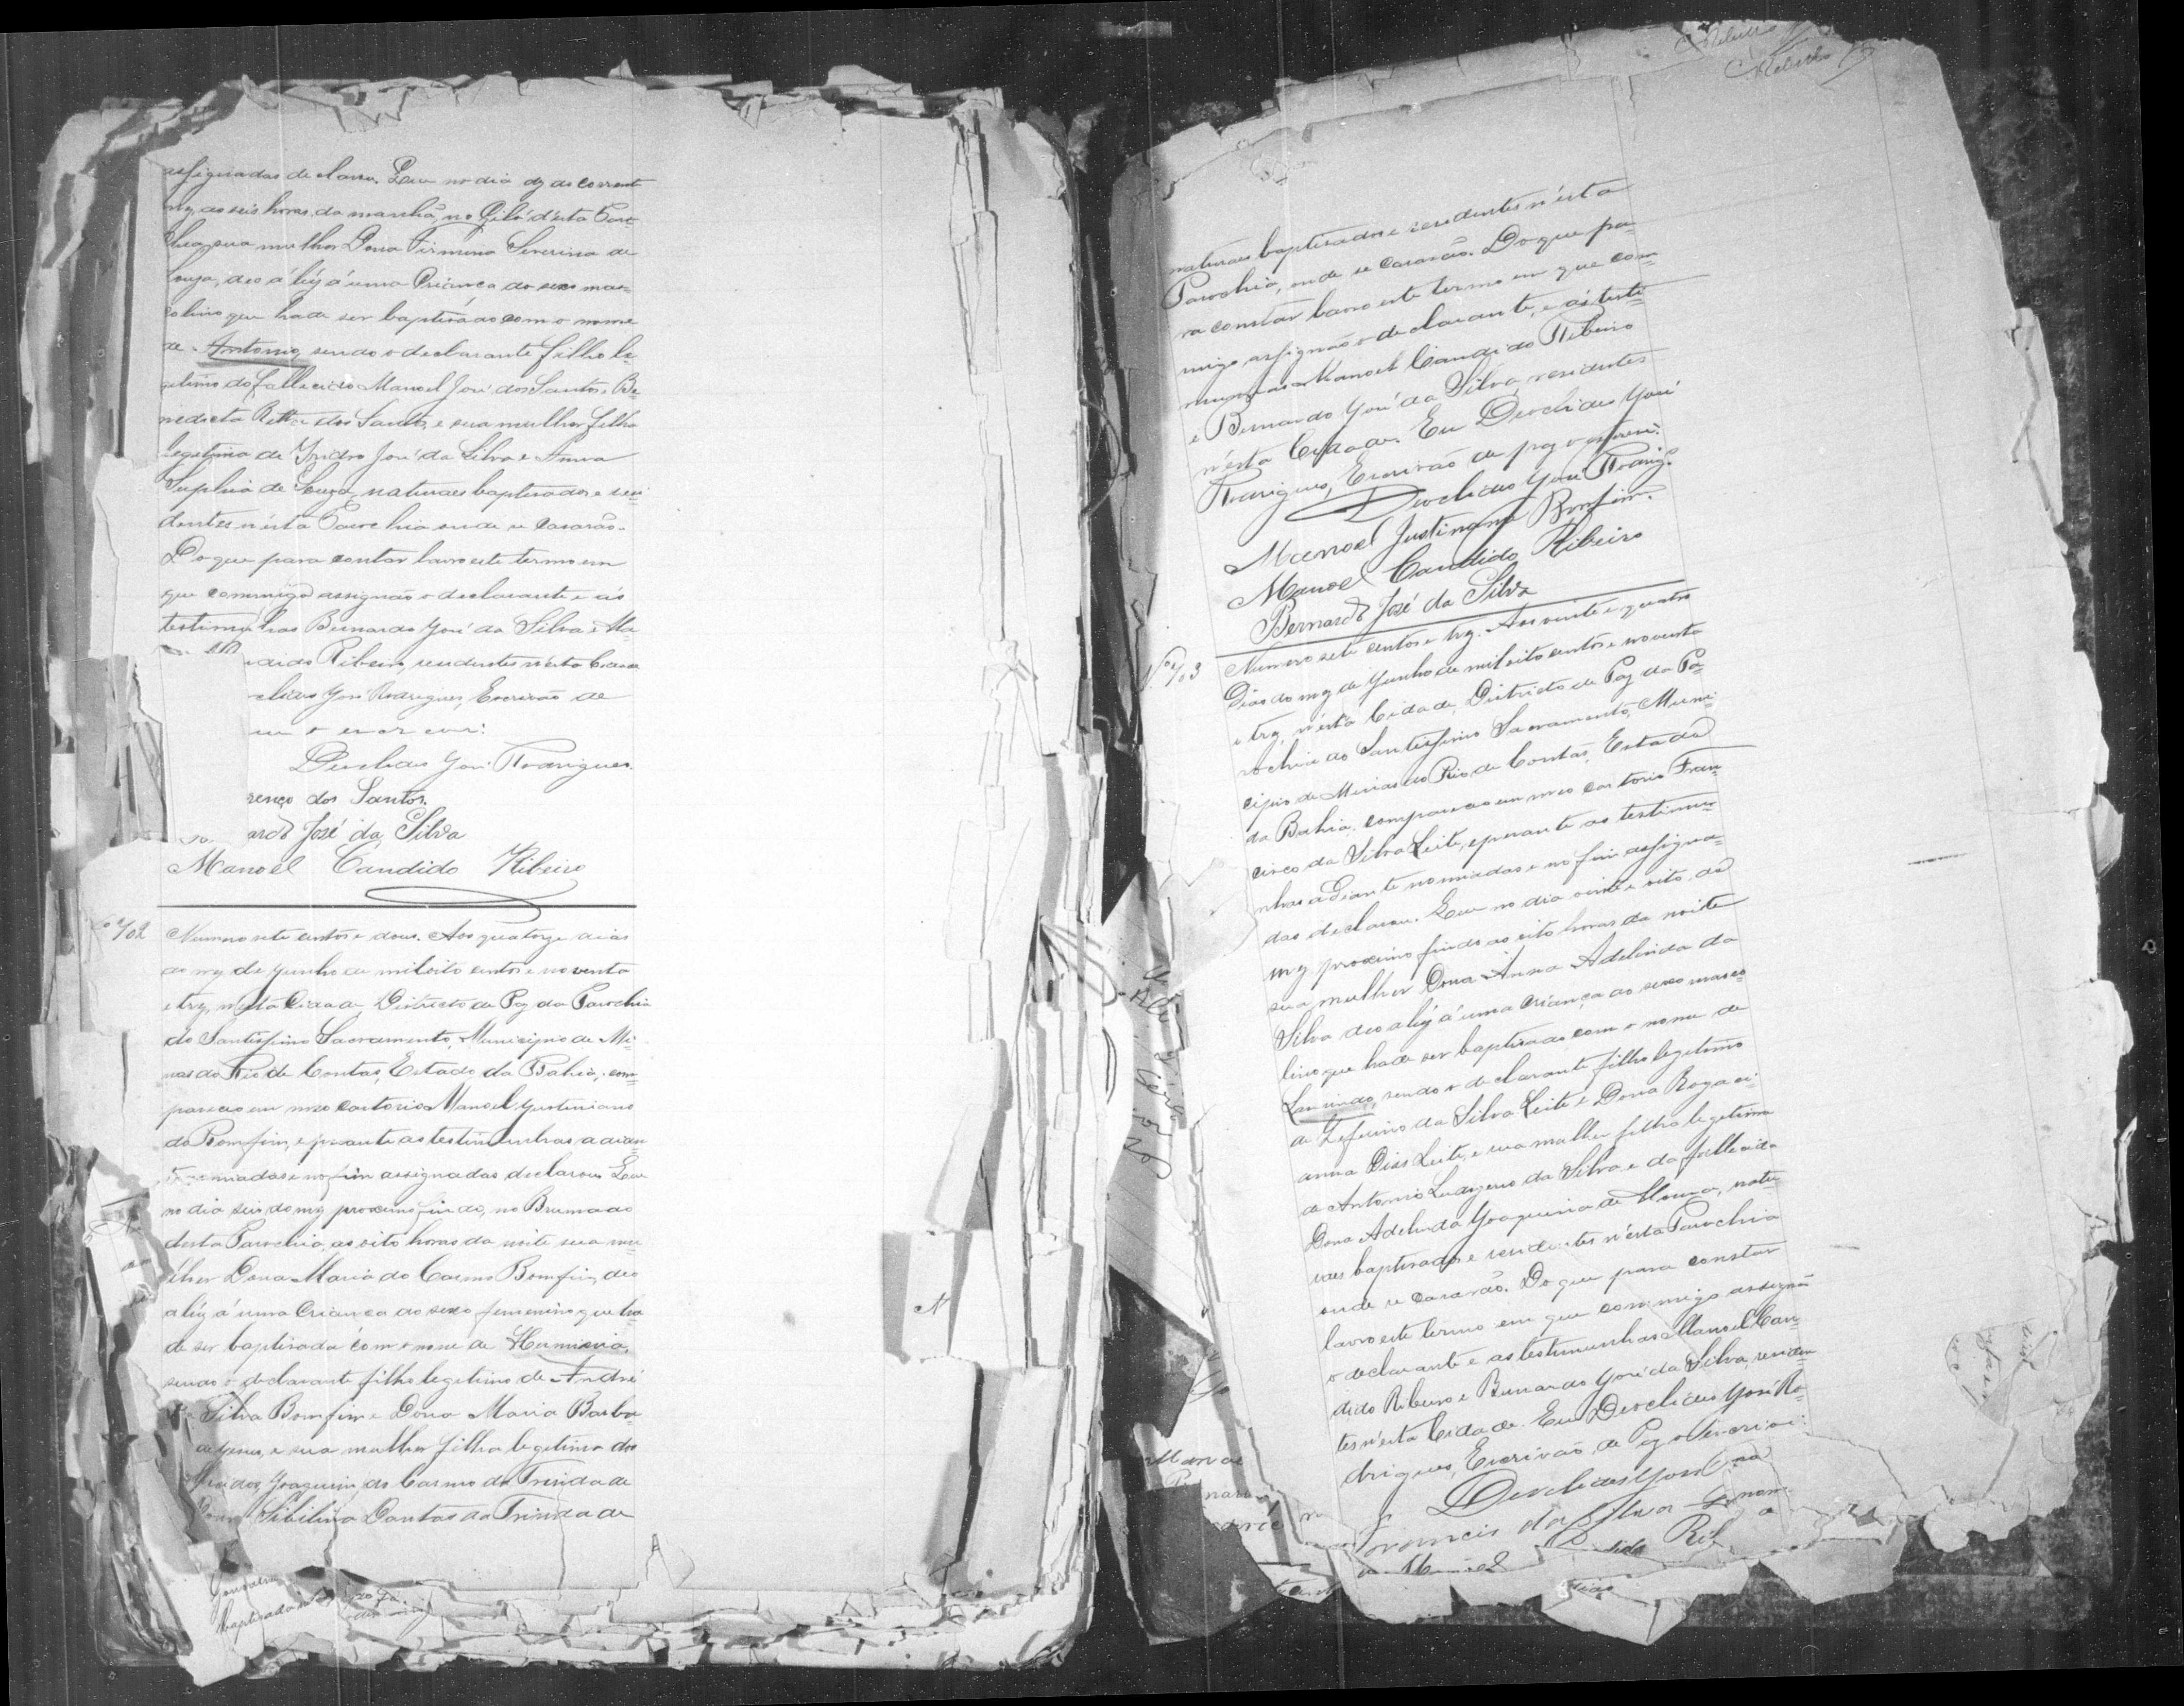 assignadas declarou. Que no dia dez do corrente
mez, as seis horas da manhã, no Giló d'esta Paro-
chia, sua mulher Dona Firmina Severina de
Souza, deo á luz á uma Criança do sexo mas=
colino que hade ser baptisado com o nome
de Antonio, sendo o declarante filho le
gitimo do fallecido Manoel José dos Santos, Be
nedicta Ritta dos Santos, e sua mulher filha
legitima de Izidro José da Silva e Anna
de Souza, naturaes baptisados e resi=
dentes n'esta Parochia onde se casarão.
Do que para contar lavro este termo em
que commigo assignão o declarante e as
testimunhas Bernardo José da Silva e Ma
dido Ribeiro, residentes n'esta Cidade
clides José Rodrigues, Escrivão de
o escrevi:
Deoclides José Rodrigues.
renço dos Santos.
ardo José da Silva
Manoel Candido Ribeiro
No 702
Numero sete centos e dous. Aos quatorze dias
do mez de Junho de mil oito centos e noventa
e trez, n'esta Cidade, Districto de Paz da Parochia
do Santissimo Sacramento, Municipio de Mi
nas do Rio de Contas, Estado da Bahia, com
pareceo em meo Cartorio Manoel Justiniano
do Bomfim, e perante as testimunhas adian
te nomiadas e no fim assignadas declarou. Que
no dia seis do mez proximo findo, no Brumado
desta Parochia, as oito horas da noite sua mu
lher Dona Maria do Carmo Bomfim, deo
a luz á uma Criança do sexo femenino que ha
de ser baptisada com o nome de Herminia,
sendo o declarante filho legitimo de André
da Silva Bomfim e Dona Maria Barbo
de Jesus, e sua mulher filha legitima dos
Joaquim do Carmo da Trindade
Dona Sibilina Dantas da Trindade
baptisados
Ribeiro
naturaes baptisados e residentes n'esta
Parochia, onde se casarão. Do que pa=
ra constar lavro este termo em que com=
migo assignão o declarante, e as testi=
munhas Manoel Candido Ribeiro
e Bernardo José da Silva, residentes
n'esta Cidade. Eu Deoclides José
Rodrigues, Escrivão de paz o escrevi.
Deoclides José Rodrigs.
Manoel Justiniano Bomfim.
Manoel Candido Ribeiro
Bernardo José da Silva
No 703
Numero sete centos e trez. Aos vinte e quatro
Dias do mez de Junho de mil oito centos e noventa
e trez, n'esta Cidade, Districto de Paz da Pa=
rochia do Santissimo Sacramento, Muni=
cipio de Minas do Rio de Contas, Estado
da Bahia, compareceo em meo cartorio Fran=
cisco da Silva Leite, e perante as testimu=
nhas adiante nomiadas e no fim assigna=
das declarou. Que no dia vinte e oito do
mez proximo findo as oito horas da noite
sua mulher Dona Anna Adelinda da
Silva deo a luz á uma Criança do sexo masco
lino que hade ser baptisado com o nome de
sendo o declarante filho legitimo
de Zeferino da Silva Leite e Dona Rogaci=
anna Dias Leite, e sua mulher filha legitima
de Antonio Ludgero da Silva e da fallecida
Dona Adelinda Joaquina de Moura, natu=
raes baptisados e residentes n'esta Parochia
onde se casarão. Do que para constar
lavro este termo em que commigo assignão
o declarante e as testimunhas Manoel Can=
dido Ribeiro e Bernardo José da Silva, residen=
tes n'esta Cidade. Eu Deoclides José Ro=
drigues, Escrivão de Paz o escrevi:
Deoclides José
da Silva
Rib